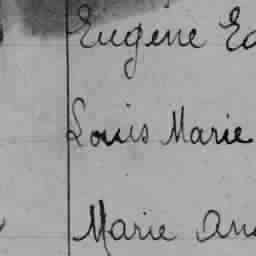 Eugène Ed
Louis Marie
Marie An